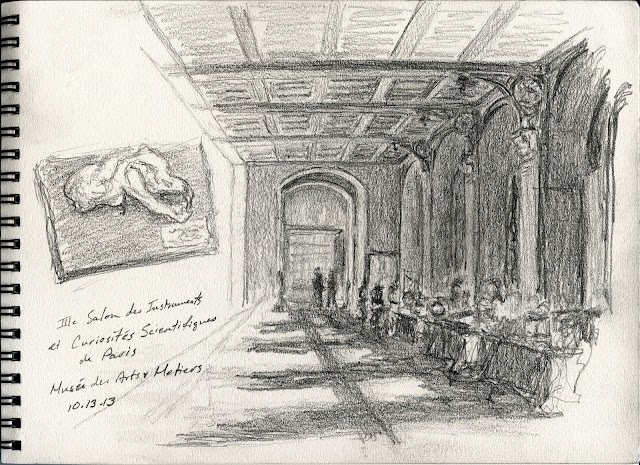 IIIe Salon des Instruments
et Curiosités Scientifiques
de Paris
Musée des Arts & Metiers
10.13.13